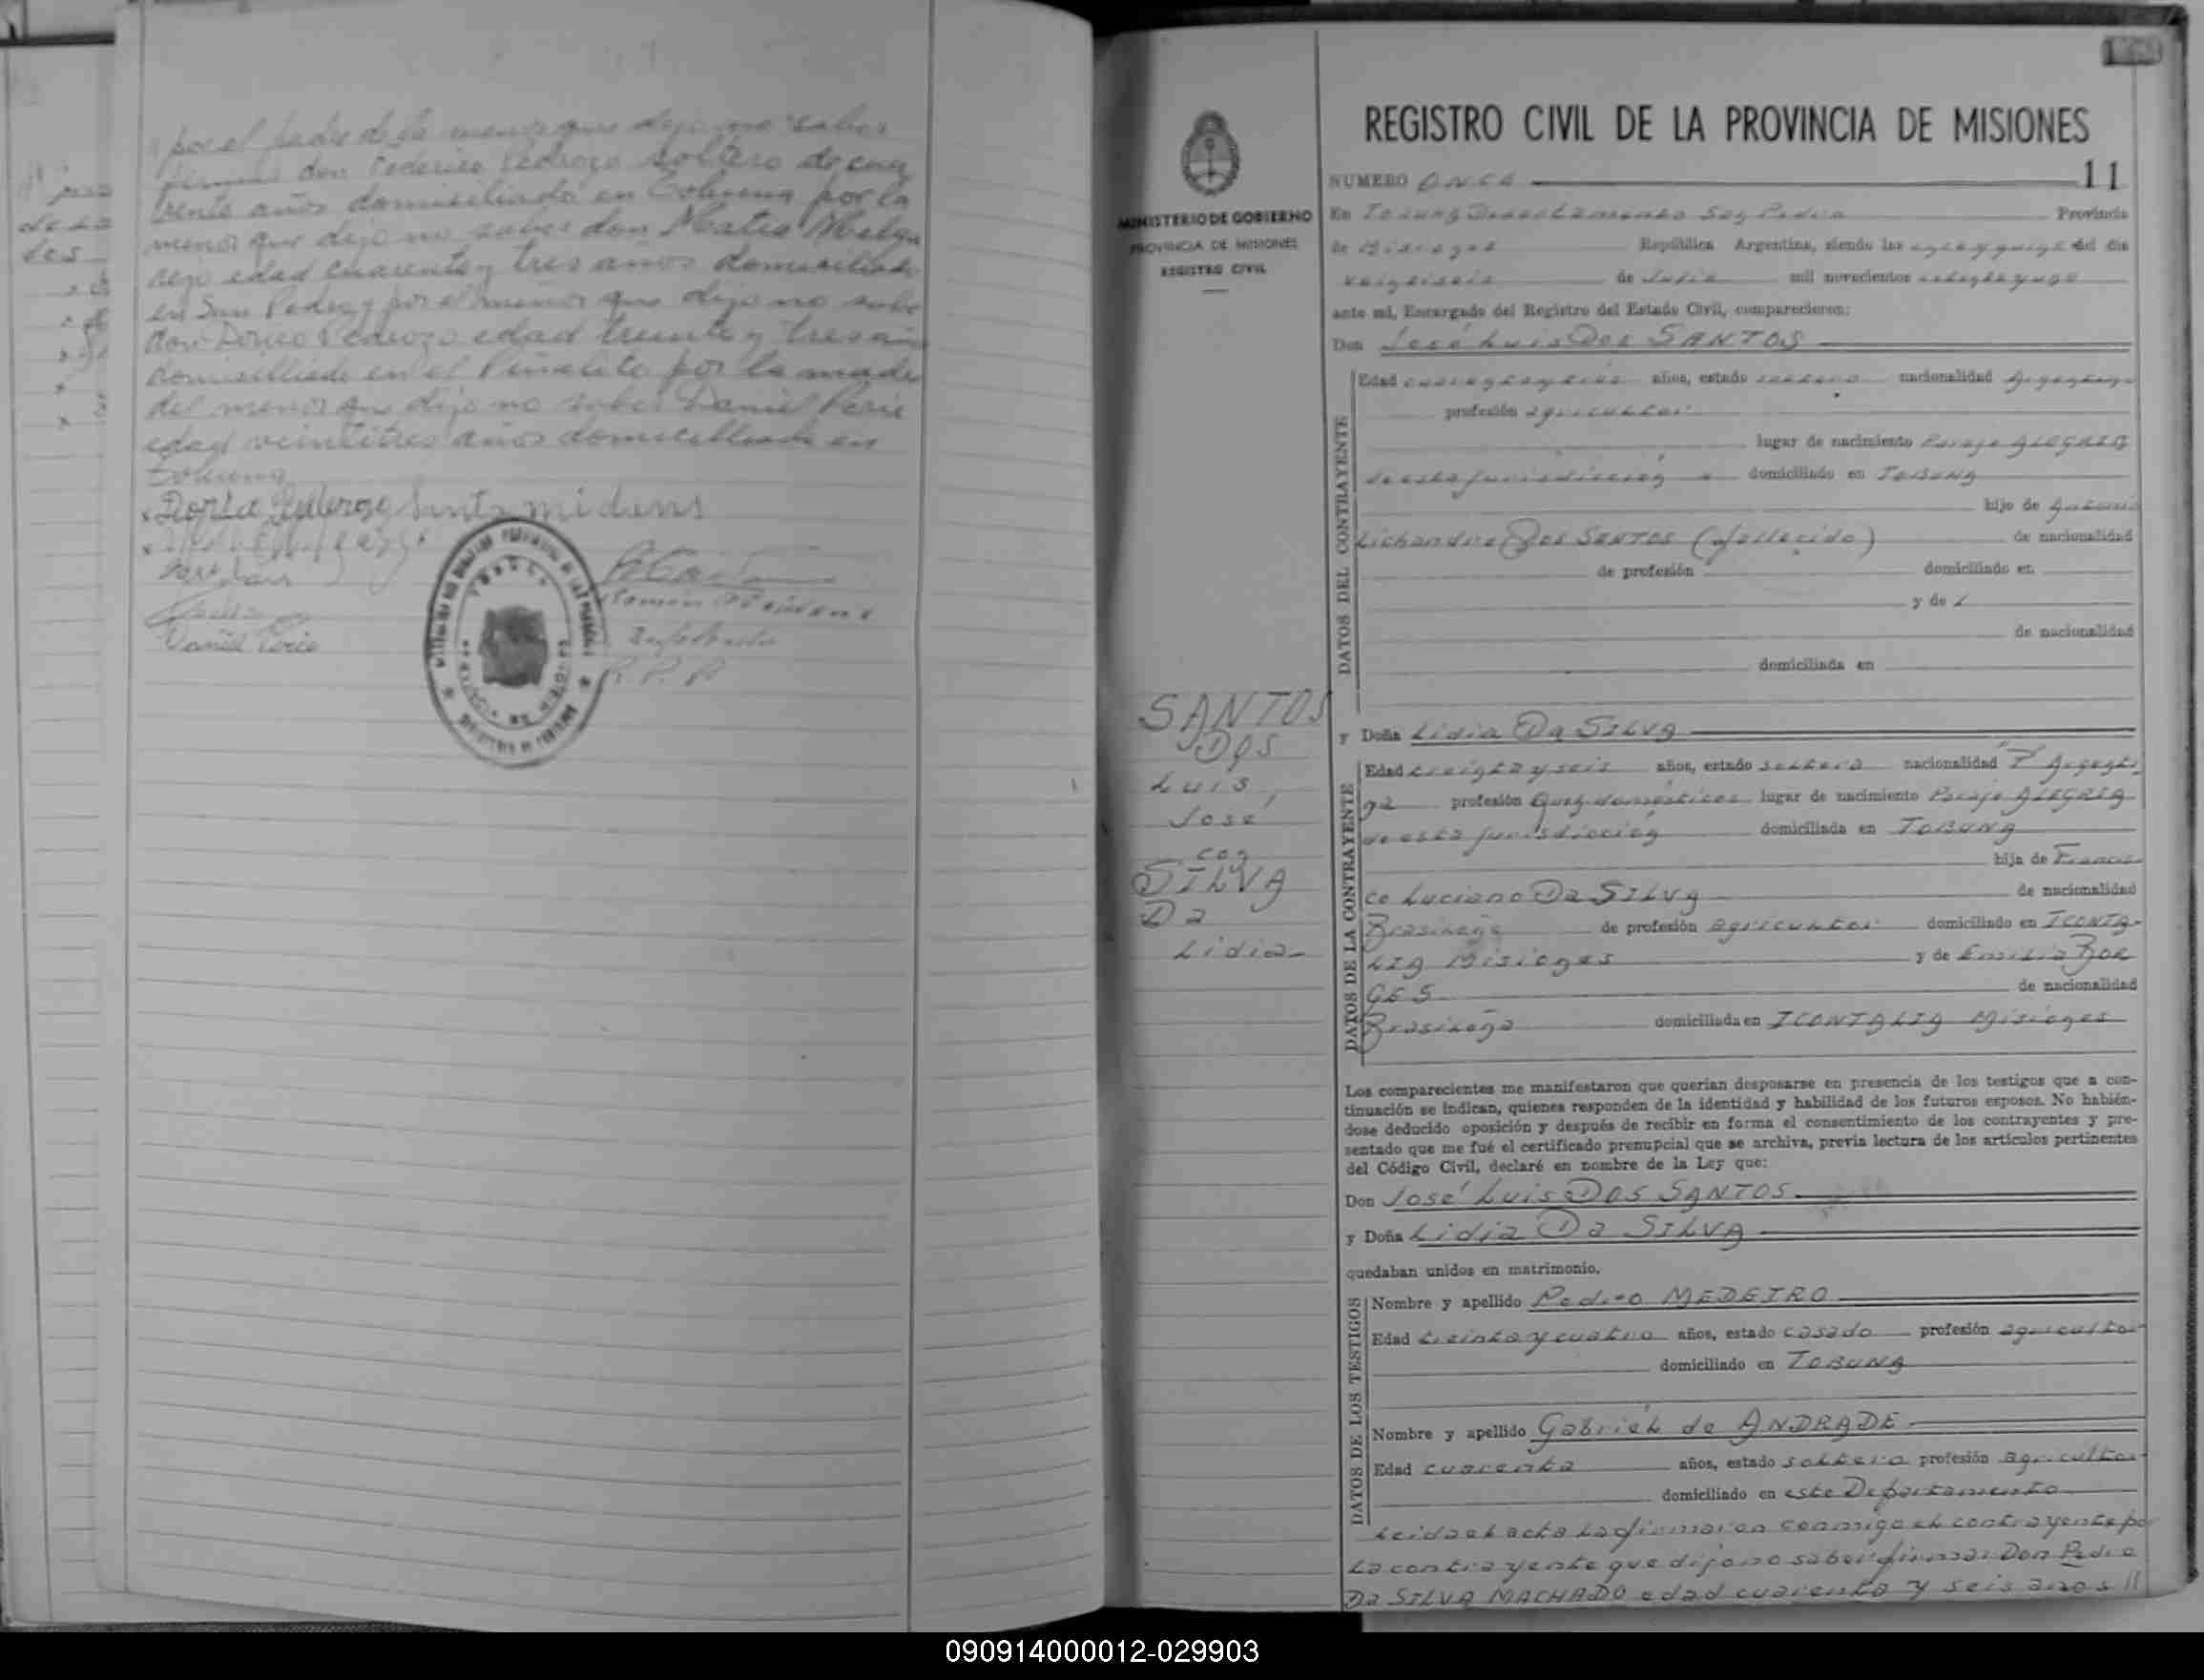 por el padre de la menor que dijo no saber
firmar don Federico Pedrozo soltero de
treinta años domiciliado en Tobuna por la
menor que dijo no saber don Mateo
rejo edad cuarenta y tres años domiciliado
en San Pedro y por el menor que dijo no sabe
don Dorico Pedrozo edad treinta y tres añ
domicilliado en el Piñalito por la madre
del menor que dijo no saber Daniel Peric
edad veintitres años domicilliado en
Tobuna
Daniel Peric
REGISTRO CIVIL DE LA PROVINCIA DE MISIONES
MINISTERIO DE GOBIERNO
PROVINCIA DE MISIONES
REGISTRO CIVIL
NUMERO ONCE 11
En Tobuna Departamento San Pedro Provincia
de Misiones República Argentina, siendo las once y quince del día
veintiseis de Julio mil novecientos setenta y uno
ante mí, Encargado del Registro del Estado Civil, comparecieron:
Don José Luis Dos SANTOS
DATOS DEL CONTRAYENTE
Edad años, estado soltero nacionalidad Argentina
profesión agricultor
lugar de nacimiento Paraje ALEGRIA
de esta jurisdicción domiciliado en TOBUNA
hijo de Antonio
Lichandro Dos SANTOS (fallecido) de nacionalidad
de profesión domiciliado en
y de
de nacionalidad
domiciliada en
SANTOS
DOS
Luis
José
con
SILVA
Da
Lidia
y Doña Lidia Da SILVA
DATOS DE LA CONTRAYENTE
Edad treinta y seis años, estado soltera nacionalidad Argenti
na profesión Queh. domésticos lugar de nacimiento Paraje ALEGRIA
de esta jurisdicción domiciliada en TOBUNA
hija de Francis
co Luciano Da SILVA de nacionalidad
Brasileña de profesión agricultor domiciliado en ICONTA-
LIA Misiones y de Emilia BOR
GES de nacionalidad
Brasileña domiciliada en ICONTALIA Misiones
Los comparecientes me manifestaron que querían desposarse en presencia de los testigos que a con-
tinuación se indican, quienes responden de la identidad y habilidad de los futuros esposos. No habién-
dose deducido oposición y después de recibir en forma el consentimiento de los contrayentes y pre-
sentado que me fué el certificado prenupcial que se archiva, previa lectura de los artículos pertinentes
del Código Civil, declaré en nombre de la Ley que:
Don José Luis Dos SANTOS
y Doña Lidia Da SILVA
quedaban unidos en matrimonio.
DATOS DE LOS TESTIGOS
Nombre y apellido Pedro MEDEIRO
Edad treinta y cuatro años, estado casado profesión agricultor
domiciliado en TOBUNA
Nombre y apellido Gabriel de ANDRADE
Edad cuarenta años, estado soltero profesión agricultor
domiciliado en este Departamento
Leida el acta la firmaron conmigo el contrayente por
la contrayente que dijo no saber firmar Don Pedro
Da SILVA MACHADO edad cuarenta y seis años //
090914000012-029903